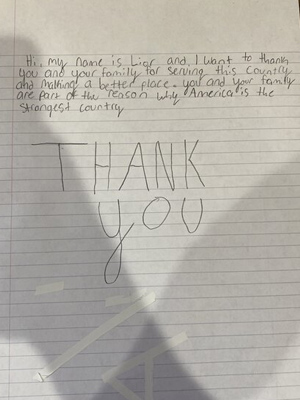 Hi, my name is Lior and, I want to thank
you and your family for serving this country
and making a better place. you and your family
are part of the reason why America is the
strongest country
THANK
you